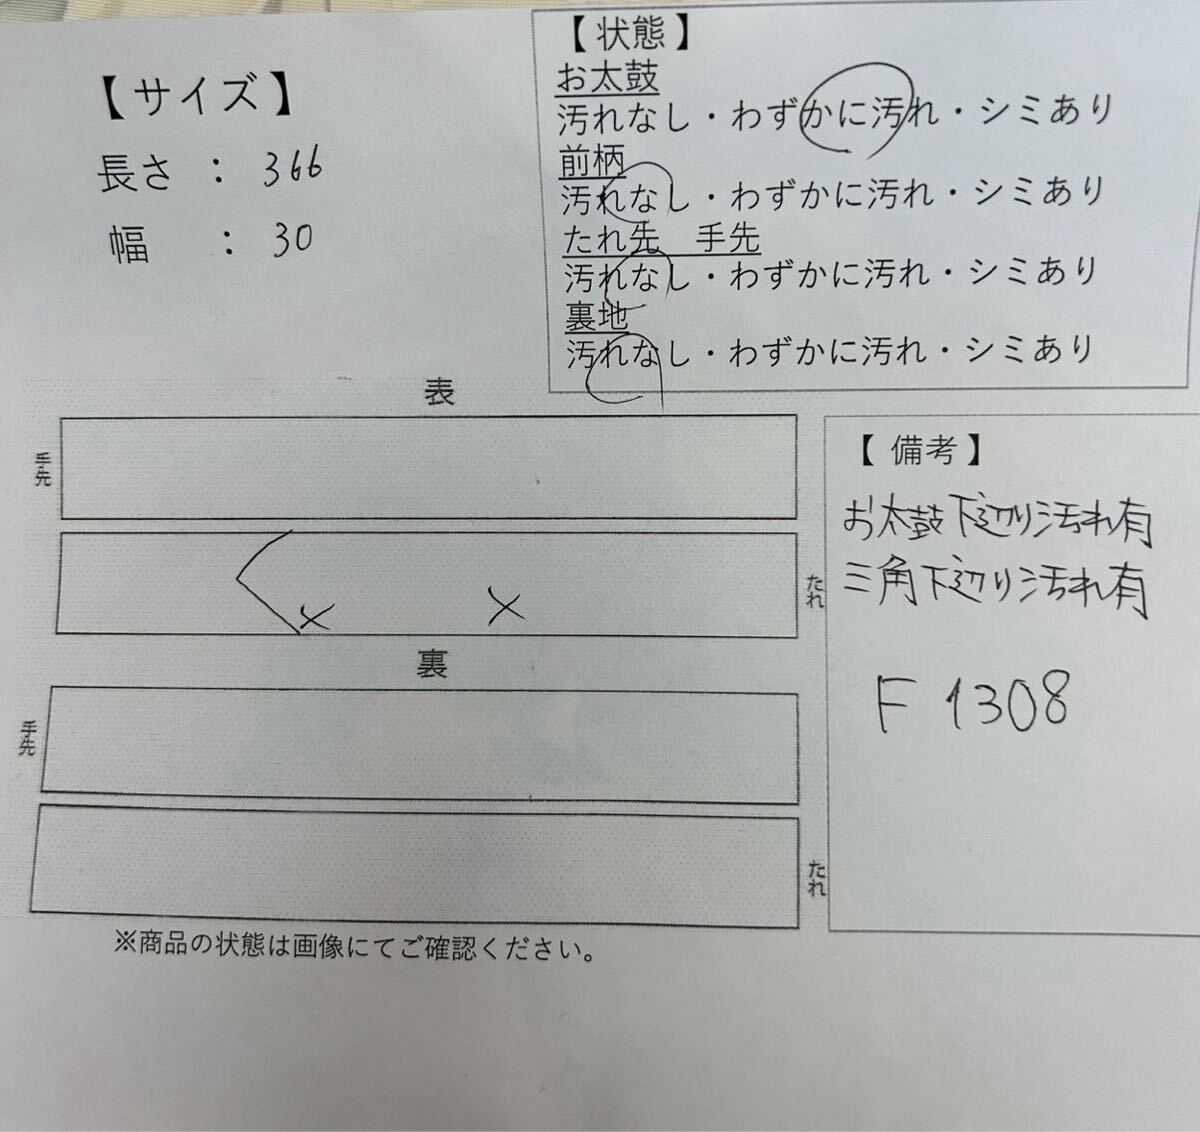 【サイズ】
長さ : 366
幅 : 30
【状態】
お太鼓
汚れなし・わずかに汚れ・シミあり
前柄
汚れなし・わずかに汚れ・シミあり
たれ先 手先
汚れなし・わずかに汚れ・シミあり
裏地
汚れなし・わずかに汚れ・シミあり
表
手先
たれ
裏
手先
たれ
※商品の状態は画像にてご確認ください。
【備考】
お太鼓下辺り汚れ有
三角下辺り汚れ有
F 1308